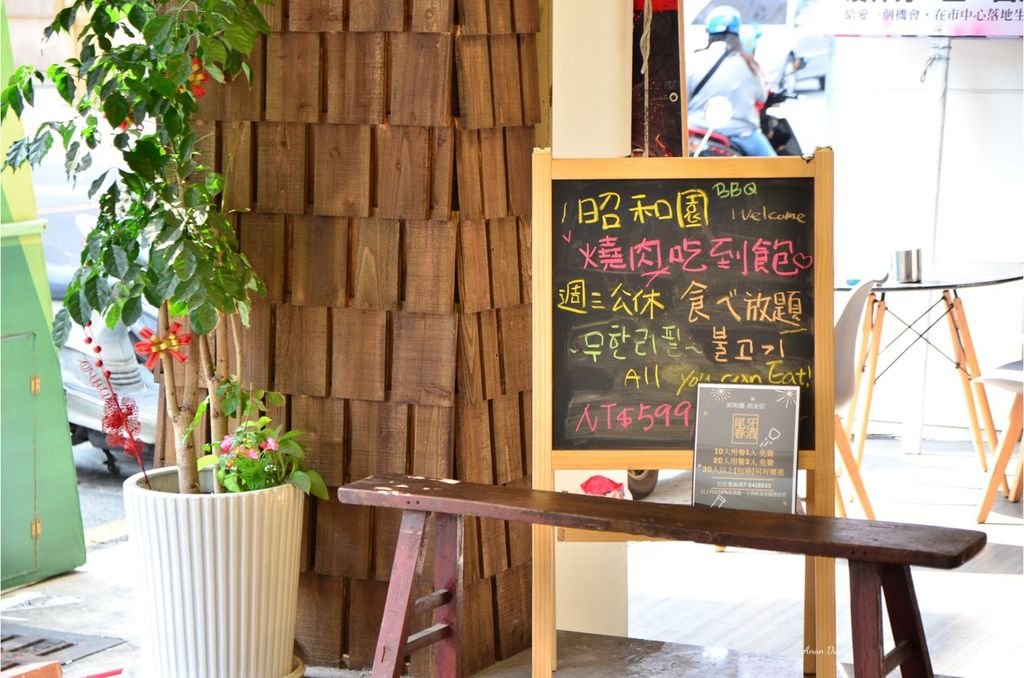 給愛一個機會，在市中心落地生
BBQ
昭和園 Welcome
燒肉吃到飽
週三公休 食べ放題
~무한리필~ 불고기
All you can Eat!
NT$599
昭和園-順金店
尾牙
春酒
10人用餐1人免費
20人用餐3人免費
30人以上[包場]另有優惠
Anan Da